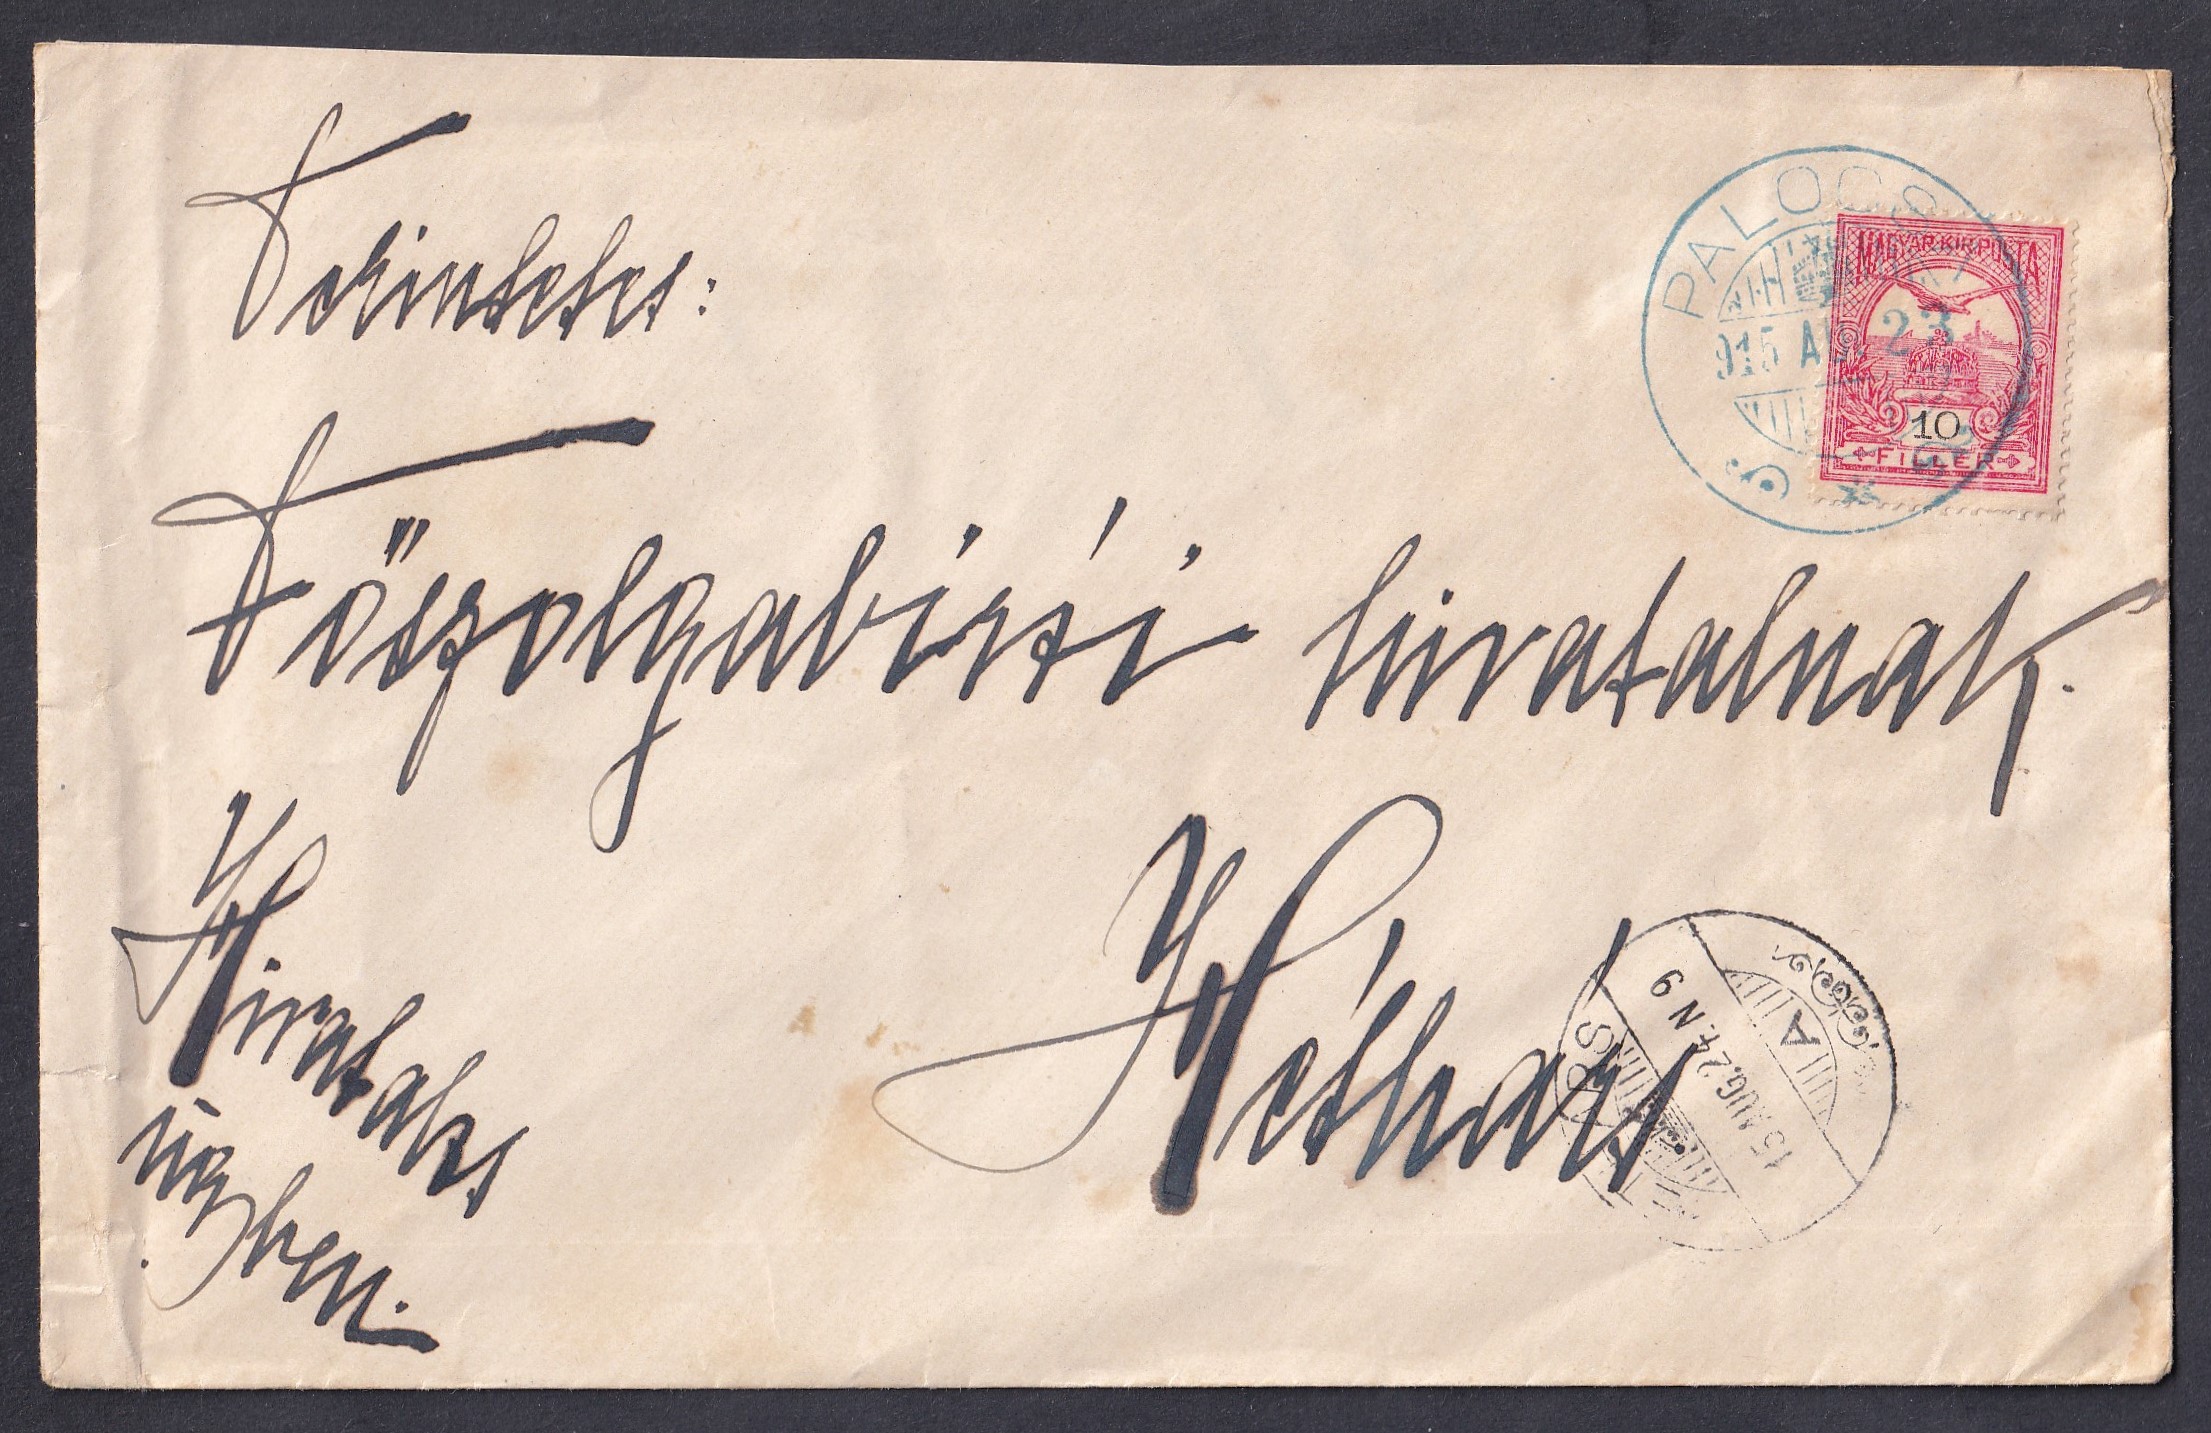 Tekintetes:
Főszolgabírói hivatalnak.
Héthárs
Hivatalos
ügyben.
PALOCSA
915 AUG 23
MAGYAR KIR. POSTA
10
FILLER
15 AUG. 24. É. N 9
A